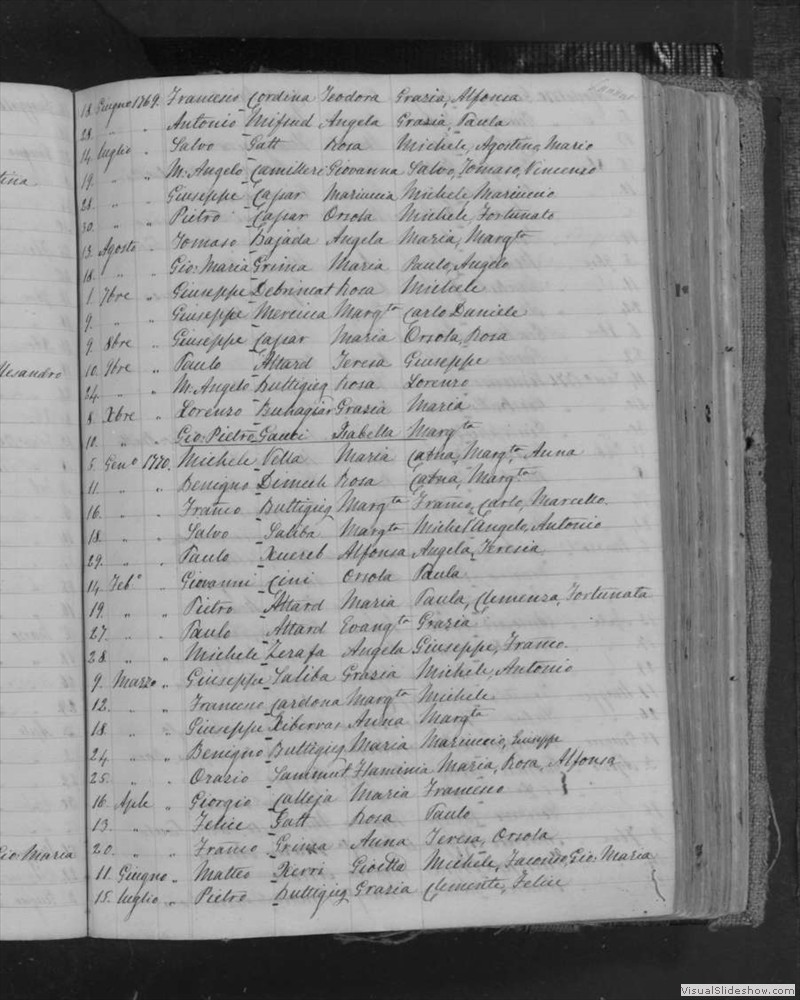 18. Giugno 1769. Francesco Cordina Teodora Grazia, Alfonsa
28. " " Antonio Mifsud Angela Grazia, Paula
14. Luglio " Salvo Gatt Rosa Michele, Agostino, Mario
19. " " M: Angelo Camilleri Giovanna Salvo, Tomaso, Vincenzo
28. " " Giuseppe Capar Mariuccia Michele, Mariuccio
30. " " Pietro Capar Orsola Michele, Fortunato
13. Agosto " Tomaso Bajada Angela Maria, Margta
18. " " Gio: Maria Grima Maria Paulo, Angelo
1. 7bre " Giuseppe Debrincat Rosa Michele
9. " " Giuseppe Mercieca Margta Carlo Daniele
9. 8bre " Giuseppe Capar Maria Orsola, Rosa
10. 9bre " Paulo Attard Teresa Giuseppe
24. " " M: Angelo Buttigieg Rosa Lorenzo
8. Xbre " Lorenzo Buhagiar Grazia Maria
10. " " Gio: Pietro Gauci Isabella Margta
5. Geno 1770. Michele Vella Maria Catna, Margta, Anna
11. " " Benigno Dimech Rosa Catna, Margta
16. " " Franco Buttigieg Margta Franco, Carlo, Marcello.
18. " " Salvo Saliba Margta Michel'Angelo, Antonio
29. " " Paulo Xuereb Alfonsa Angela, Teresia
14. Febo " Giovanni Cini Orsola Paula
19. " " Pietro Attard Maria Paula, Clemenza, Fortunata
27. " " Paulo Attard Evangta Grazia
28. " " Michele Zerafa Angela Giuseppe, Franco.
9. Marzo " Giuseppe Saliba Grazia Michele, Antonio
12. " " Francesco Cardona Margta Michele
18. " " Giuseppe Xibervas Anna Margta
24. " " Benigno Buttigieg Maria Mariuccio, Giuseppe
25. " " Orazio Sammut Flaminia Maria, Rosa, Alfonsa
16. Aple " Giorgio Calleja Maria Francesco
13. " " Felice Gatt Rosa Paulo
20. " " Franco Grima Anna Teresa, Orsola
11. Giugno " Matteo Michele, Giacomo, Gio: Maria
15. Luglio " Pietro Buttigieg Grazia Clemente, Felice
lesandro
Gio: Maria
VisualSlideshow.com